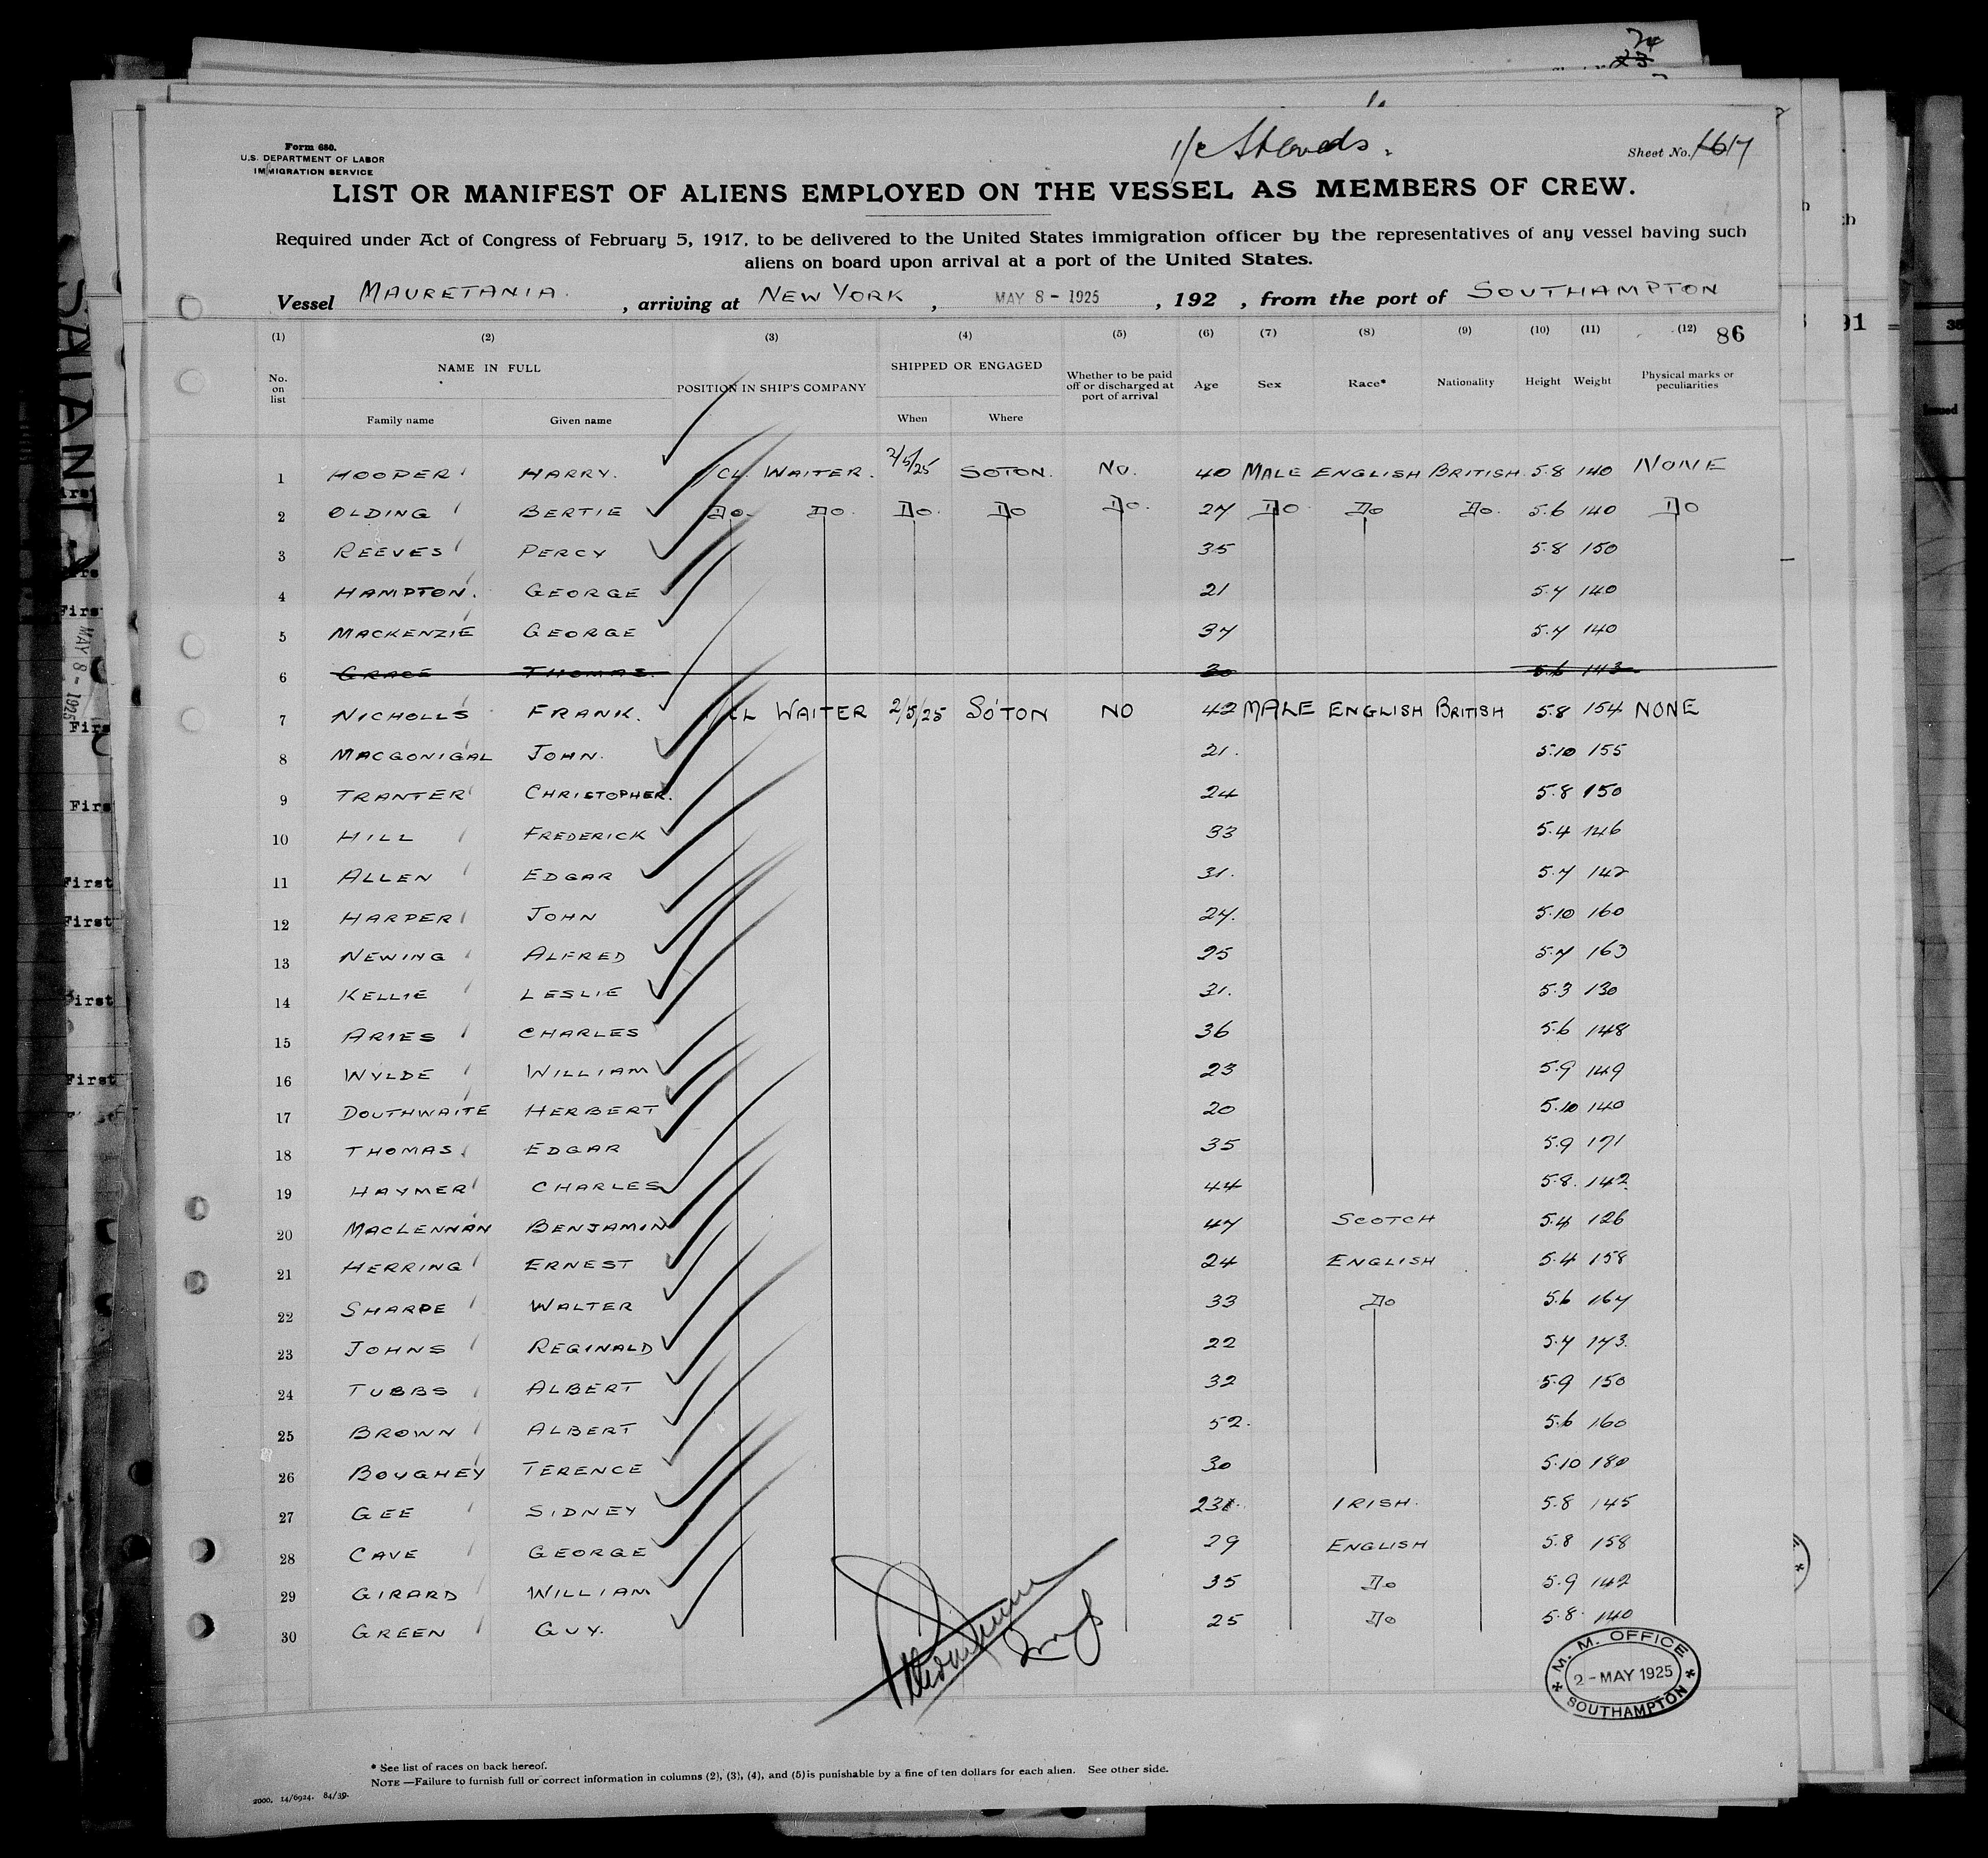 Form 680.
U.S. DEPARTMENT OF LABOR
IMMIGRATION SERVICE
1/c Stewds.
Sheet No. 1617
LIST OR MANIFEST OF ALIENS EMPLOYED ON THE VESSEL AS MEMBERS OF CREW.
Required under Act of Congress of February 5, 1917, to be delivered to the United States immigration officer by the representatives of any vessel having such
aliens on board upon arrival at a port of the United States.
Vessel MAURETANIA. , arriving at NEW YORK , MAY 8 - 1925 , 192 , from the port of SOUTHAMPTON
(1) (2) (3) (4) (5) (6) (7) (8) (9) (10) (11) (12) 86
No. on list NAME IN FULL POSITION IN SHIP'S COMPANY SHIPPED OR ENGAGED Whether to be paid off or discharged at port of arrival Age Sex Race* Nationality Height Weight Physical marks or peculiarities
Family name Given name When Where
1 HOOPER HARRY. 1/CL WAITER. 2/5/25 SOTON. NO. 40 MALE ENGLISH BRITISH. 5.8 140 NONE
2 OLDING BERTIE DO. DO. DO. DO DO. 27 DO. DO DO. 5.6 140 DO
3 REEVES PERCY 35 5.8 150
4 HAMPTON. GEORGE 21 5.7 140
5 MACKENZIE GEORGE 37 5.7 140
6 GRACE THOMAS. 30 5.6 143
7 NICHOLLS FRANK. 1/CL WAITER 2/5/25 SO'TON NO 42 MALE ENGLISH BRITISH 5.8 154 NONE
8 MACGONIGAL JOHN. 21. 5.10 155
9 TRANTER CHRISTOPHER. 24 5.8 150
10 HILL FREDERICK 33 5.4 146
11 ALLEN EDGAR 31. 5.7 142
12 HARPER JOHN 27. 5.10 160
13 NEWING ALFRED 25 5.7 163
14 KELLIE LESLIE 31. 5.3 130
15 ARIES CHARLES 36 5.6 148
16 WYLDE WILLIAM 23 5.9 149
17 DOUTHWAITE HERBERT 20 5.10 140
18 THOMAS. EDGAR 35 5.9 171
19 HAYMER CHARLES 44 5.8. 142
20 MACLENNAN BENJAMIN 47 SCOTCH 5.4 126
21 HERRING ERNEST 24 ENGLISH 5.4 158
22 SHARPE WALTER 33 DO 5.6 167
23 JOHNS REGINALD 22 5.7 173.
24 TUBBS ALBERT 32 5.9 150
25 BROWN ALBERT 52. 5.6 160
26 BOUGHEY TERENCE 30 5.10 180
27 GEE SIDNEY 23 IRISH. 5.8 145
28 CAVE GEORGE 29 ENGLISH 5.8 158
29 GIRARD WILLIAM 35 DO 5.9 142
30 GREEN GUY. 25 DO 5.8. 140
M. M. OFFICE
2 - MAY 1925
SOUTHAMPTON
* See list of races on back hereof.
NOTE —Failure to furnish full or correct information in columns (2), (3), (4), and (5) is punishable by a fine of ten dollars for each alien. See other side.
2000. 14/6924. 84/39.